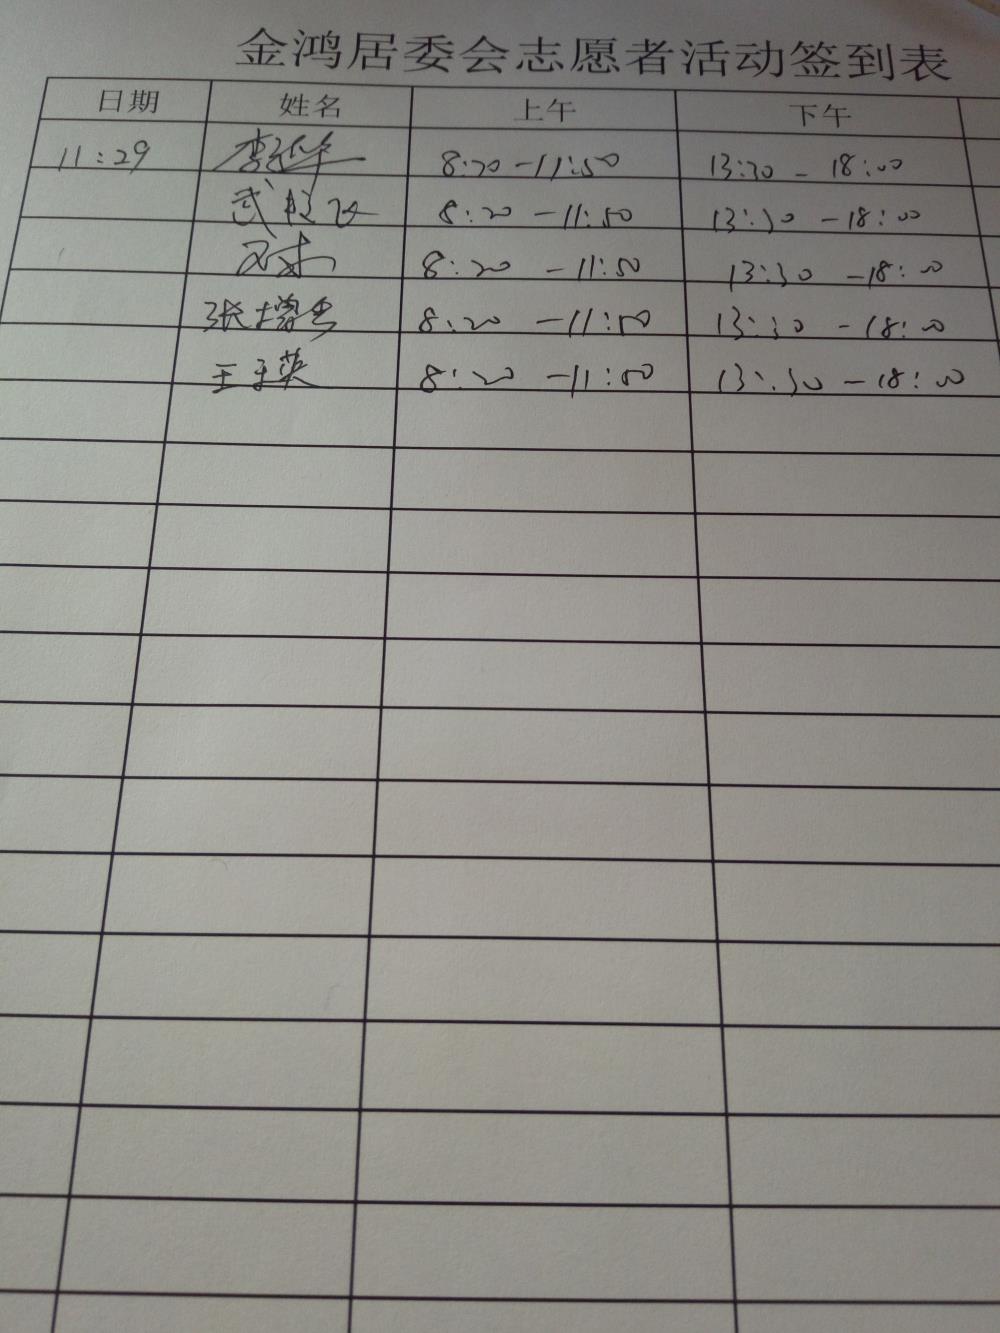 金鸿居委会志愿者活动签到表
日期 姓名 上午 下午
11:29 8:20-11:50 13:30-18:00
8:20-11:50 13:30-18:00
8:20-11:50 13:30-18:00
张增 8:20-11:50 13:30-18:00
王玉英 8:20-11:50 13:30-18:00